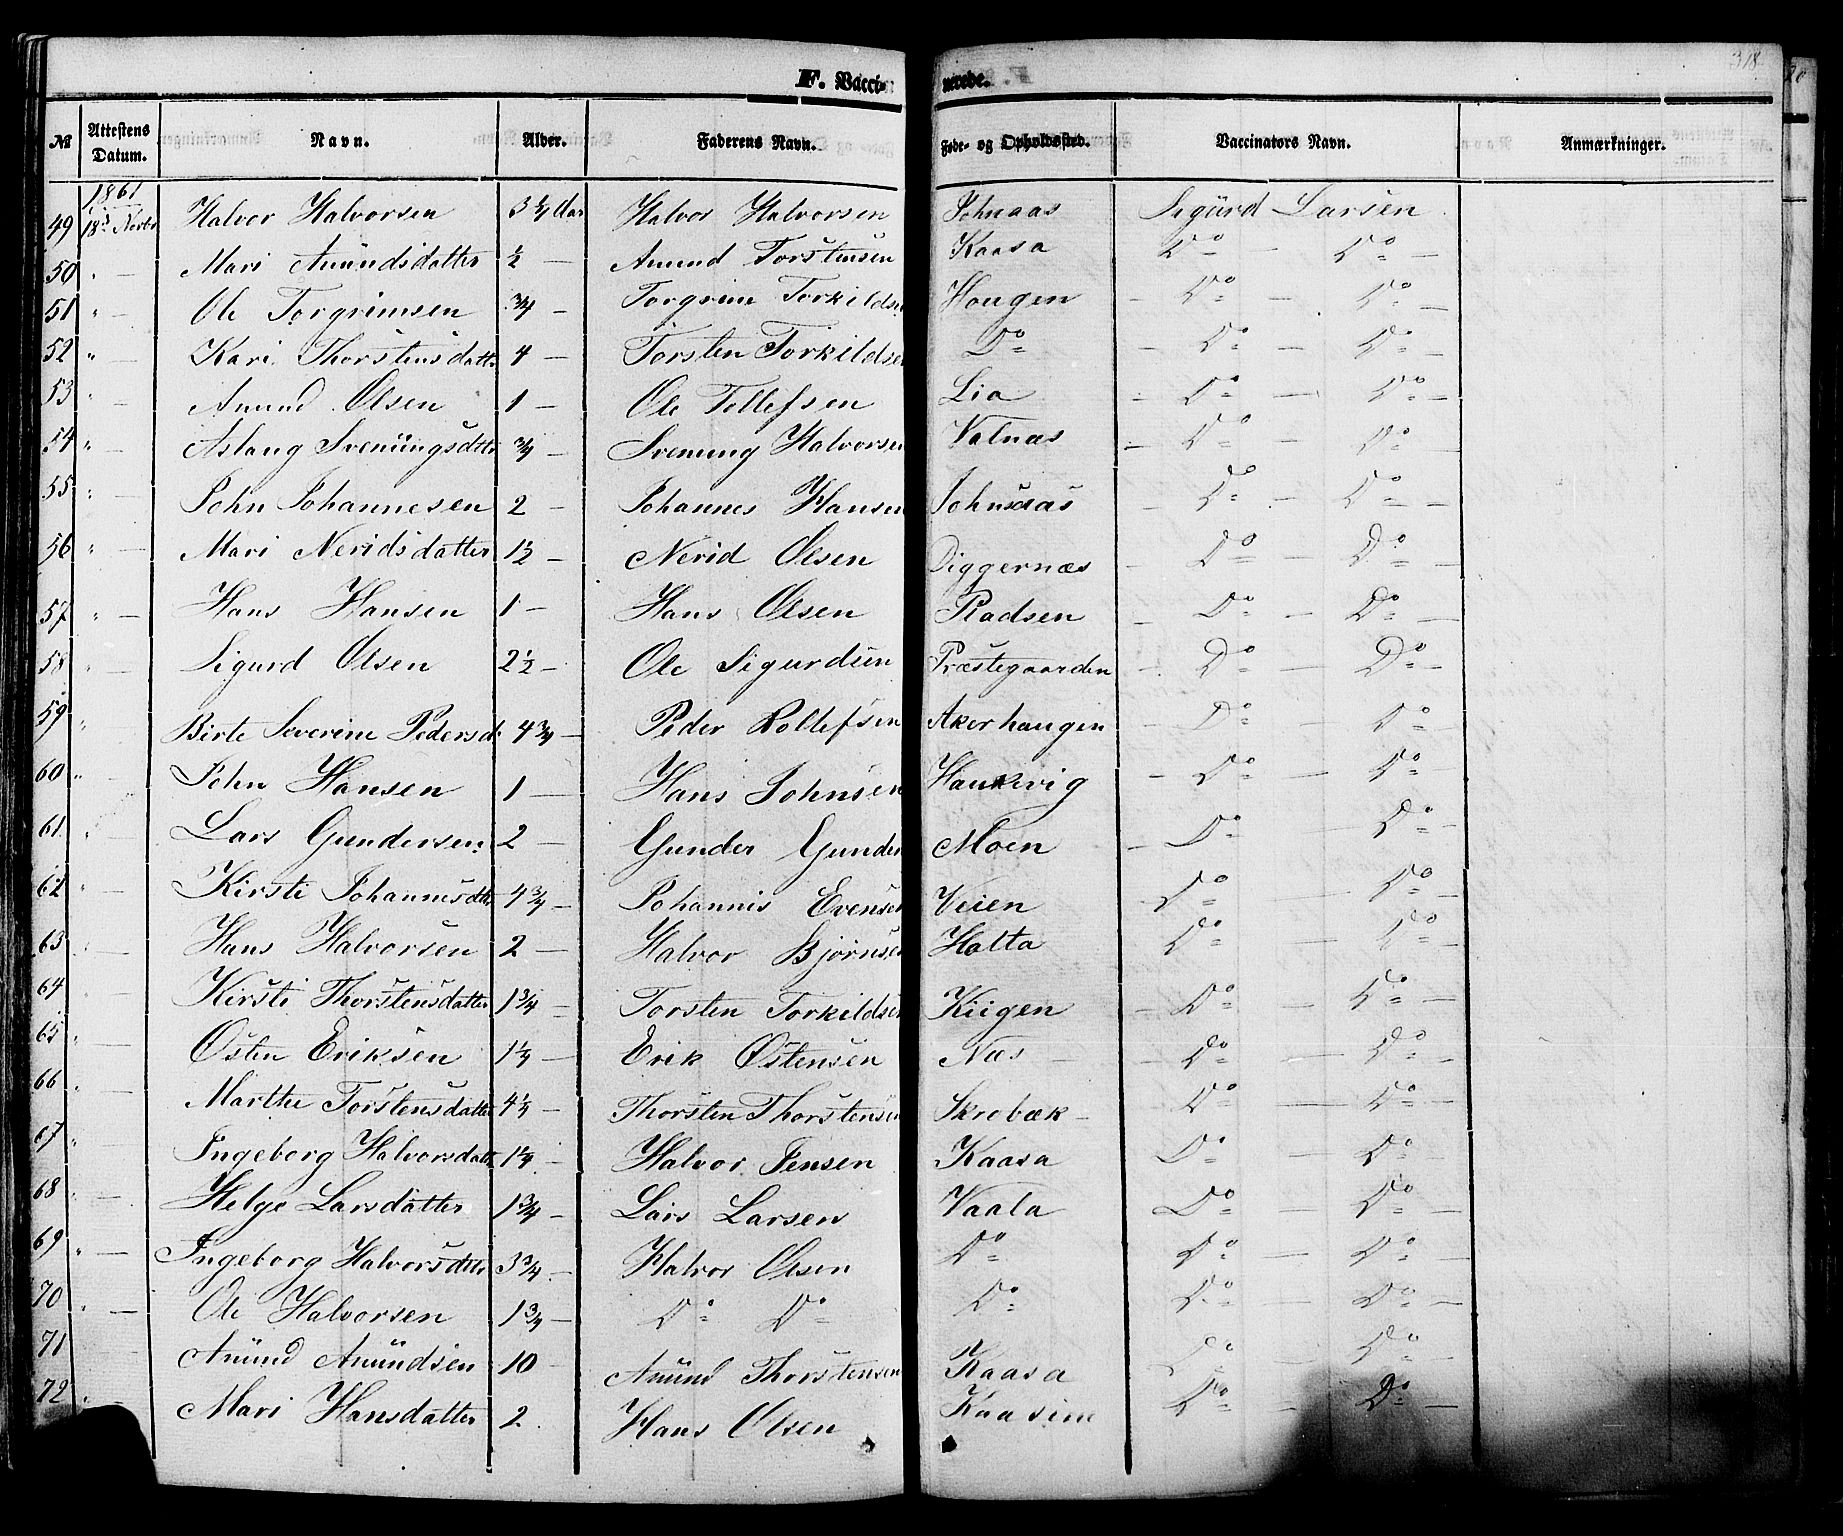 318
F. Vaccinerede.
№ | Attestens Datum. | Navn. | Alder. | Faderens Navn. | Føde- og Opholdssted. | Vaccinators Navn. | Anmærkninger.
1861
49 18d Novbr Halvor Halvorsen 3 1/4 Aar Halvor Halvorsen Johnaas Sigurd Larsen
50 " — Mari Amundsdatter 1/2 — Amund Torstensen Kaasa Do — Do —
51 " — Ole Torgrimsen 3/4 — Torgrim Torkildsen Hougen — Do — Do —
52 " — Kari Thorstensdatter 4 — Torsten Torkildsen Do — Do — Do —
53 " — Amund Olsen 1 — Ole Tollefsen Lia — Do — Do —
54 " — Aslaug Sveningsdtter 3/4 — Svenung Halvorsen Valnæs — Do — Do —
55 " — John Johannesen 2 — Johannes Hansen Johnsaas — Do — Do —
56 " — Mari Neridsdatter 1 1/2 — Nerid Olsen Diggernæs — Do — Do —
57 " — Hans Hansen 1 — Hans Olsen Pladsen — Do — Do —
58 " — Sigurd Olsen 2 1/2 — Ole Sigurdsen Præstegaarden — Do — Do —
59 " Birte Severine Pedersd. 4 3/4 — Peder Rollefsen Akerhaugen — Do — Do —
60 " — John Hansen 1 — Hans Johnsen Haukvig — Do — Do —
61 " — Lars Gundersen 2 — Gunder Gunder Moen — Do — Do —
62 " — Kirsti Johannesdtter 4 3/4 — Johannis Evensen Veien Do — Do —
63 " — Hans Halvorsen 2 — Halvor Bjørnsen Holta Do — Do —
64 " — Kirsti Thorstensdatter 1 3/4 — Torsten Torkildsen Kiigen — Do — Do —
65 " — Østen Eriksen 1 1/4 — Erik Østensen Næs — Do — Do —
66 " — Marthe Torstensdatter 4 1/4 — Thorsten Thorstensen Skrobæk — Do — Do —
67 " Ingeborg Halvorsdatt 1 1/4 — Halvor Jensen Kaasa Do — Do —
68 " — Helge Larsdatter 1 3/4 — Lars Larsen Vaala Do — Do —
69 " — Ingeborg Halvorsdtter 3 3/4 — Halvor Olsen Do Do — Do —
70 " — Ole Halvorsen 1 3/4 — Do Do Do Do — Do —
71 Amund Amundsen 10 — Amund Thorstensen Kaasa Do — Do —
72 " Mari Hansdatter 2 Hans Olsen Kaasim Do — Do —